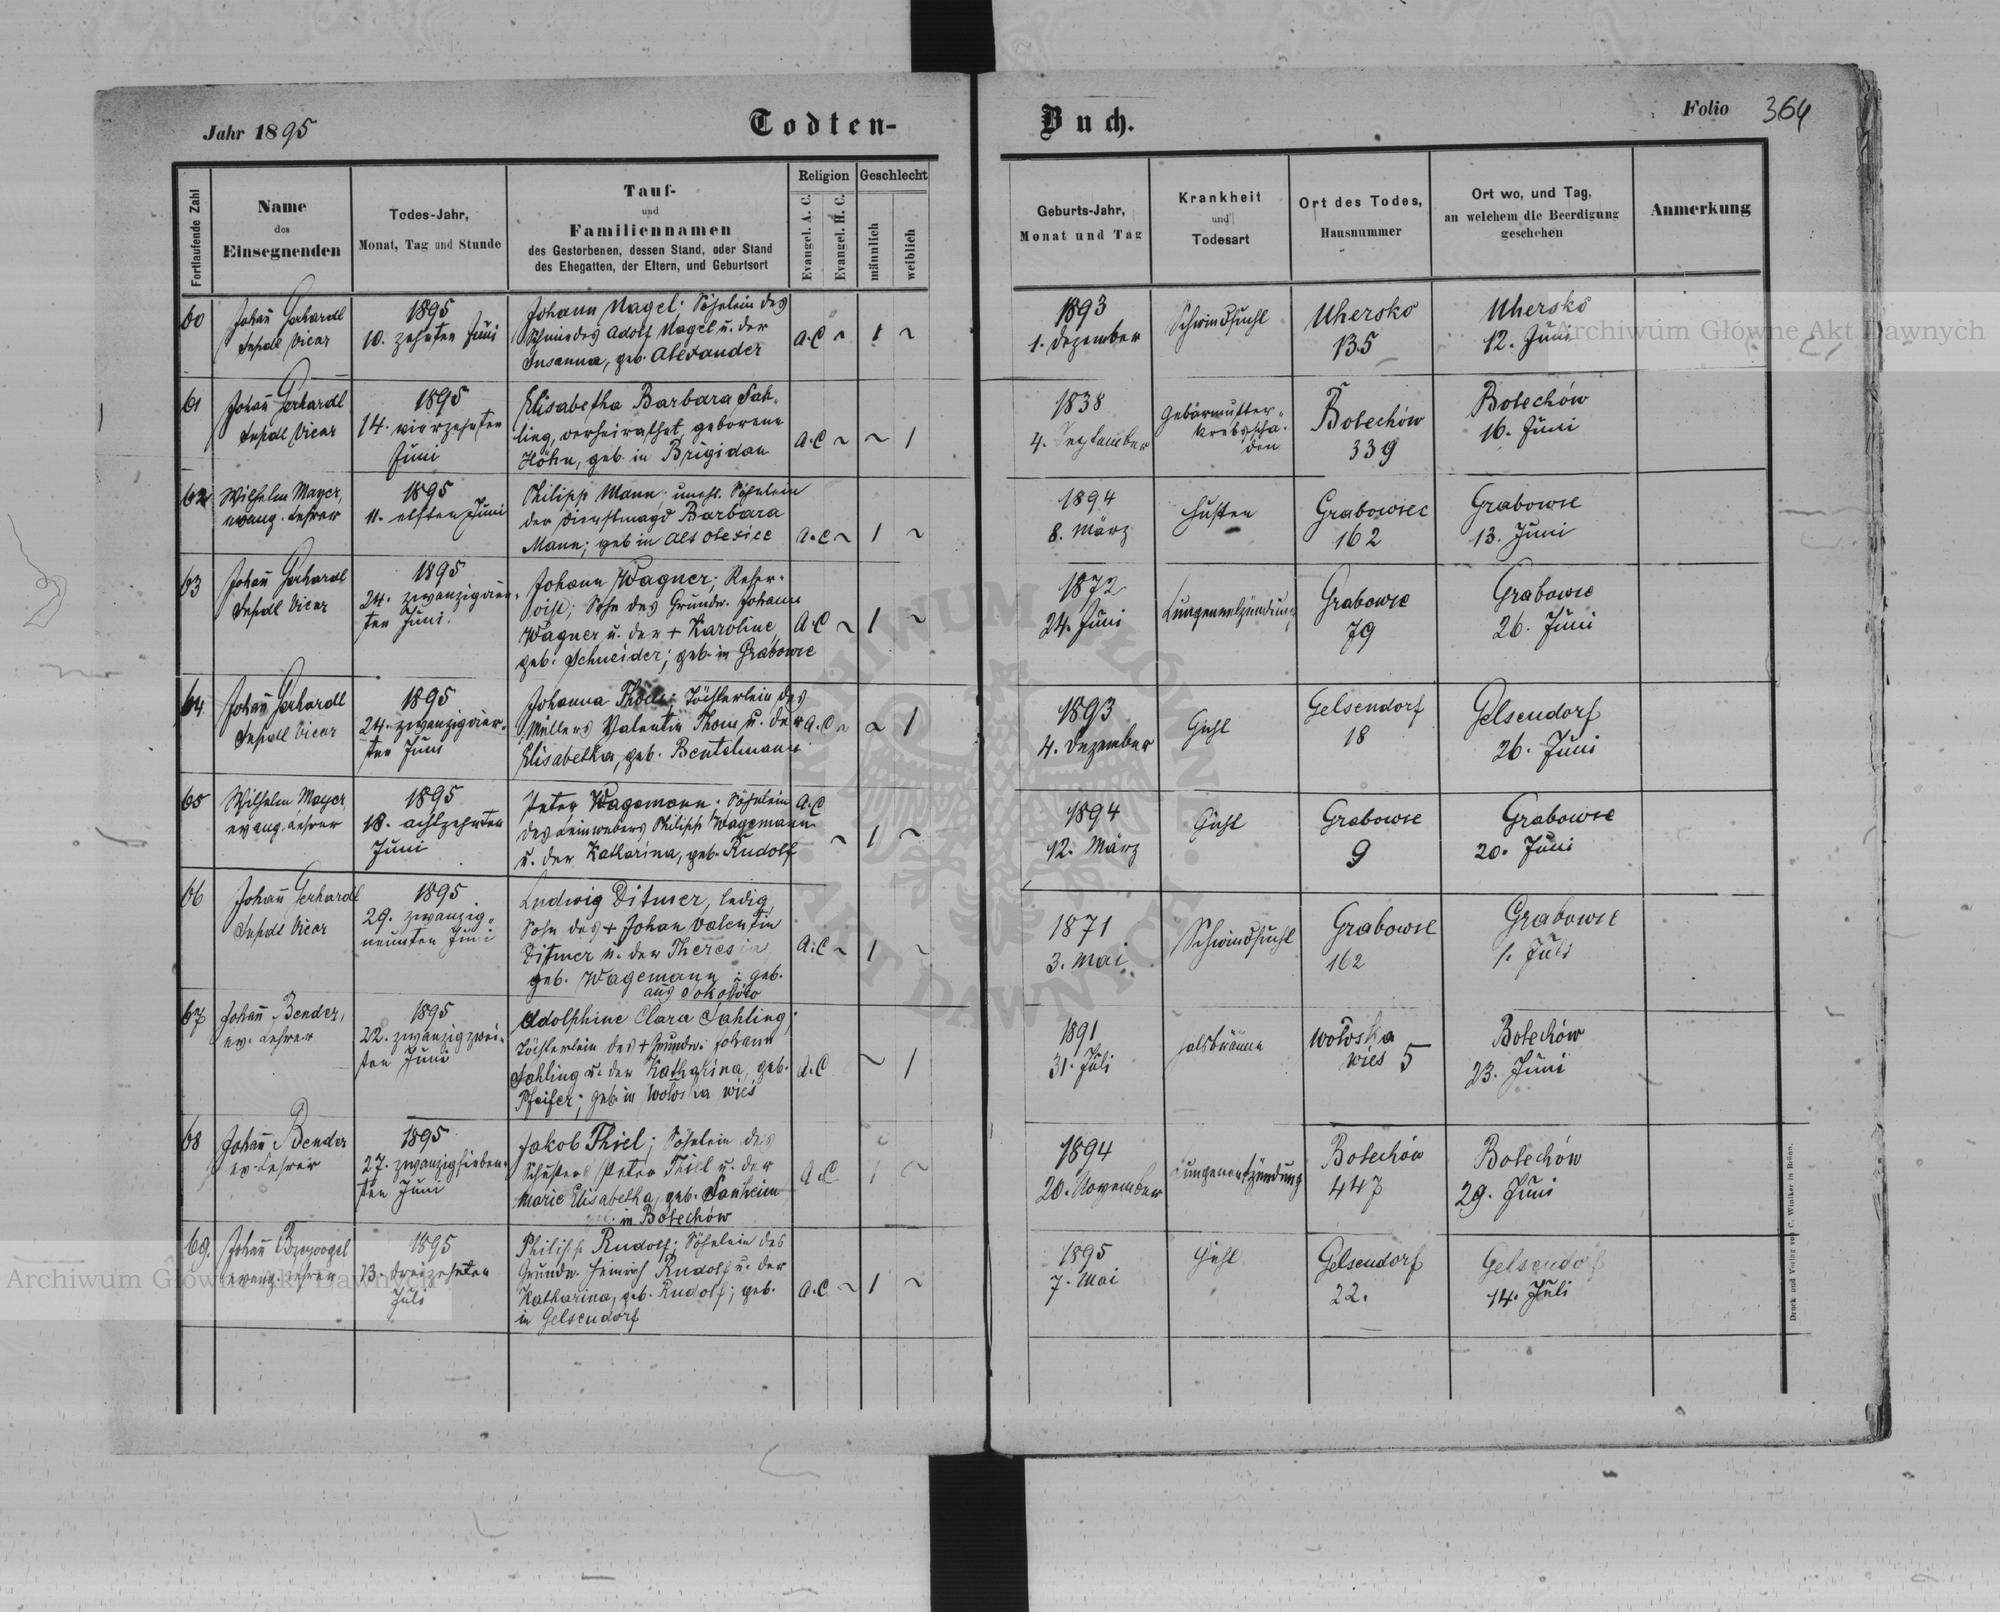 Jahr 1895
Todten-
Buch.
Folio 364
Fortlaufende Zahl
Name
des
Einsegnenden
Todes-Jahr,
Monat, Tag und Stunde
Tauf-
und
Familiennamen
des Gestorbenen, dessen Stand, oder Stand
des Ehegatten, der Eltern, und Geburtsort
Religion
Evangel. A. C.
Evangel. H. C.
Geschlecht
männlich
weiblich
Geburts-Jahr,
Monat und Tag
Krankheit
und
Todesart
Ort des Todes,
Hausnummer
Ort wo, und Tag,
an welchem die Beerdigung
geschehen
Anmerkung
60
Johañ Gerhardt
Vicar
1895
10. zehnten Juni
Johann Nagel; Söhnlein des
Schmiedes Adolf Nagel u. der
Susanna, geb. Alexander
A.C ~ 1 ~
1893
1. Dezember
Schwindsucht
Uhersko
135
Uhersko
12. Juni
61
Johañ Gerhardt
Vicar
1895
14. vierzehnten
Juni
Elisabetha Barbara Sah-
ling, verheirathet, geborene
Höhn, geb. in Brigidau
A.C ~ ~ 1
1838
4. September
Gebärmutter-
krebsscha-
den
Bolechów
339
Bolechów
16. Juni
62
Wilhelm Mayer,
evang. Lehrer
1895
11. elften Juni
Philipp Mann; unehl. Söhnlein
der Dienstmagd Barbara
Mann; geb in Alt Olexice
A.C ~ 1 ~
1894
8. März
Husten
Grabowiec
162
Grabowce
13. Juni
63
Johañ Gerhardt
Vicar
1895
24. zwanzigvier-
ten Juni.
Johann Wagner; Reser-
vist; Sohn des Grundw. Johann
Wagner u. der + Karoline,
geb. Schneider; geb. in Grabowce
A.C ~ 1 ~
1872
24. Juni
Lungenentzündung
Grabowce
79
Grabowce
26. Juni
64
Johañ Gerhardt
Vicar
1895
24. zwanzigvier-
ten Juni
Johanna Thom; Töchterlein des
Müllers Valentin Thom u. der
Elisabetha, geb. Beutelmann
A.C ~ ~ 1
1893
4. Dezember
Gicht
Gelsendorf
18
Gelsendorf
26. Juni
65
Wilhelm Mayer
evang. Lehrer
1895
18. achtzehnten
Juni
Peter Wagemann; Söhnlein
des Leinwebers Philipp Wagemann
u. der Katharina, geb. Rudolf
A.C ~ 1 ~
1894
12. März
Gicht
Grabowce
9
Grabowce
20. Juni
66
Johañ Gerhardt
Vicar
1895
29. zwanzig-
neunten Juni
Ludwig Ditmer, ledig,
Sohn des + Johan Valentin
Ditmer u. der Theresia,
geb. Wagemann; geb.
aus
A.C ~ 1 ~
1871
3. Mai
Schwindsucht
Grabowce
162
Grabowce
1. Juli
67
Johañ Bender,
ev. Lehrer
1895
22. zwanzigzwei-
ten Juni
Adolphine Clara Sahling;
Töchterlein des + Grundw. Johann
Sahling u. der Katharina, geb.
Pfeifer; geb. in Wołoska wieś
A.C ~ 1
1891
31. Juli
Halsbräune
Wołoska
wieś 5
Bolechów
23. Juni
68
Johañ Bender
ev. Lehrer
1895
27. zwanzigsieben-
ten Juni
Jakob Thiel; Söhnlein des
Schusters Peter Thiel u. der
Marie Elisabetha, geb. Sanheim
geb. in Bolechów
A.C 1 ~
1894
20. November
Lungenentzündung
Bolechów
447
Bolechów
29. Juni
69.
Johañ
evang. Lehrer
1895
13. dreizehnten
Juli
Philipp Rudolf; Söhnlein des
Grundw. Heinrich Rudolf u. der
Katharina, geb. Rudolf; geb.
in Gelsendorf
A.C ~ 1 ~
1895
7. Mai
Gicht
Gelsendorf
22.
Gelsendorf
14. Juli
Druck und Verlag von C. Winiker in Brünn.
Archiwum Główne Akt Dawnych
Archiwum Główne Akt Dawnych
ARCHIWUM GŁÓWNE · AKT DAWNYCH ·